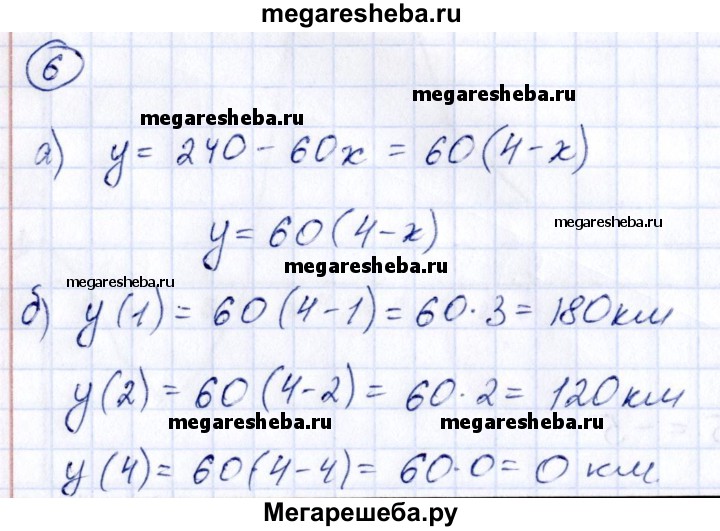 megaresheba.ru
6
megaresheba.ru
megaresheba.ru
а) y = 240 - 60x = 60(4-x)
y = 60(4-x)
megaresheba.ru
megaresheba.ru
megaresheba.ru
б) y(1) = 60(4-1) = 60·3 = 180км
y(2) = 60(4-2) = 60·2 = 120км
megaresheba.ru
megaresheba.ru
y(4) = 60(4-4) = 60·0 = 0 км.
Мегарешеба.ру